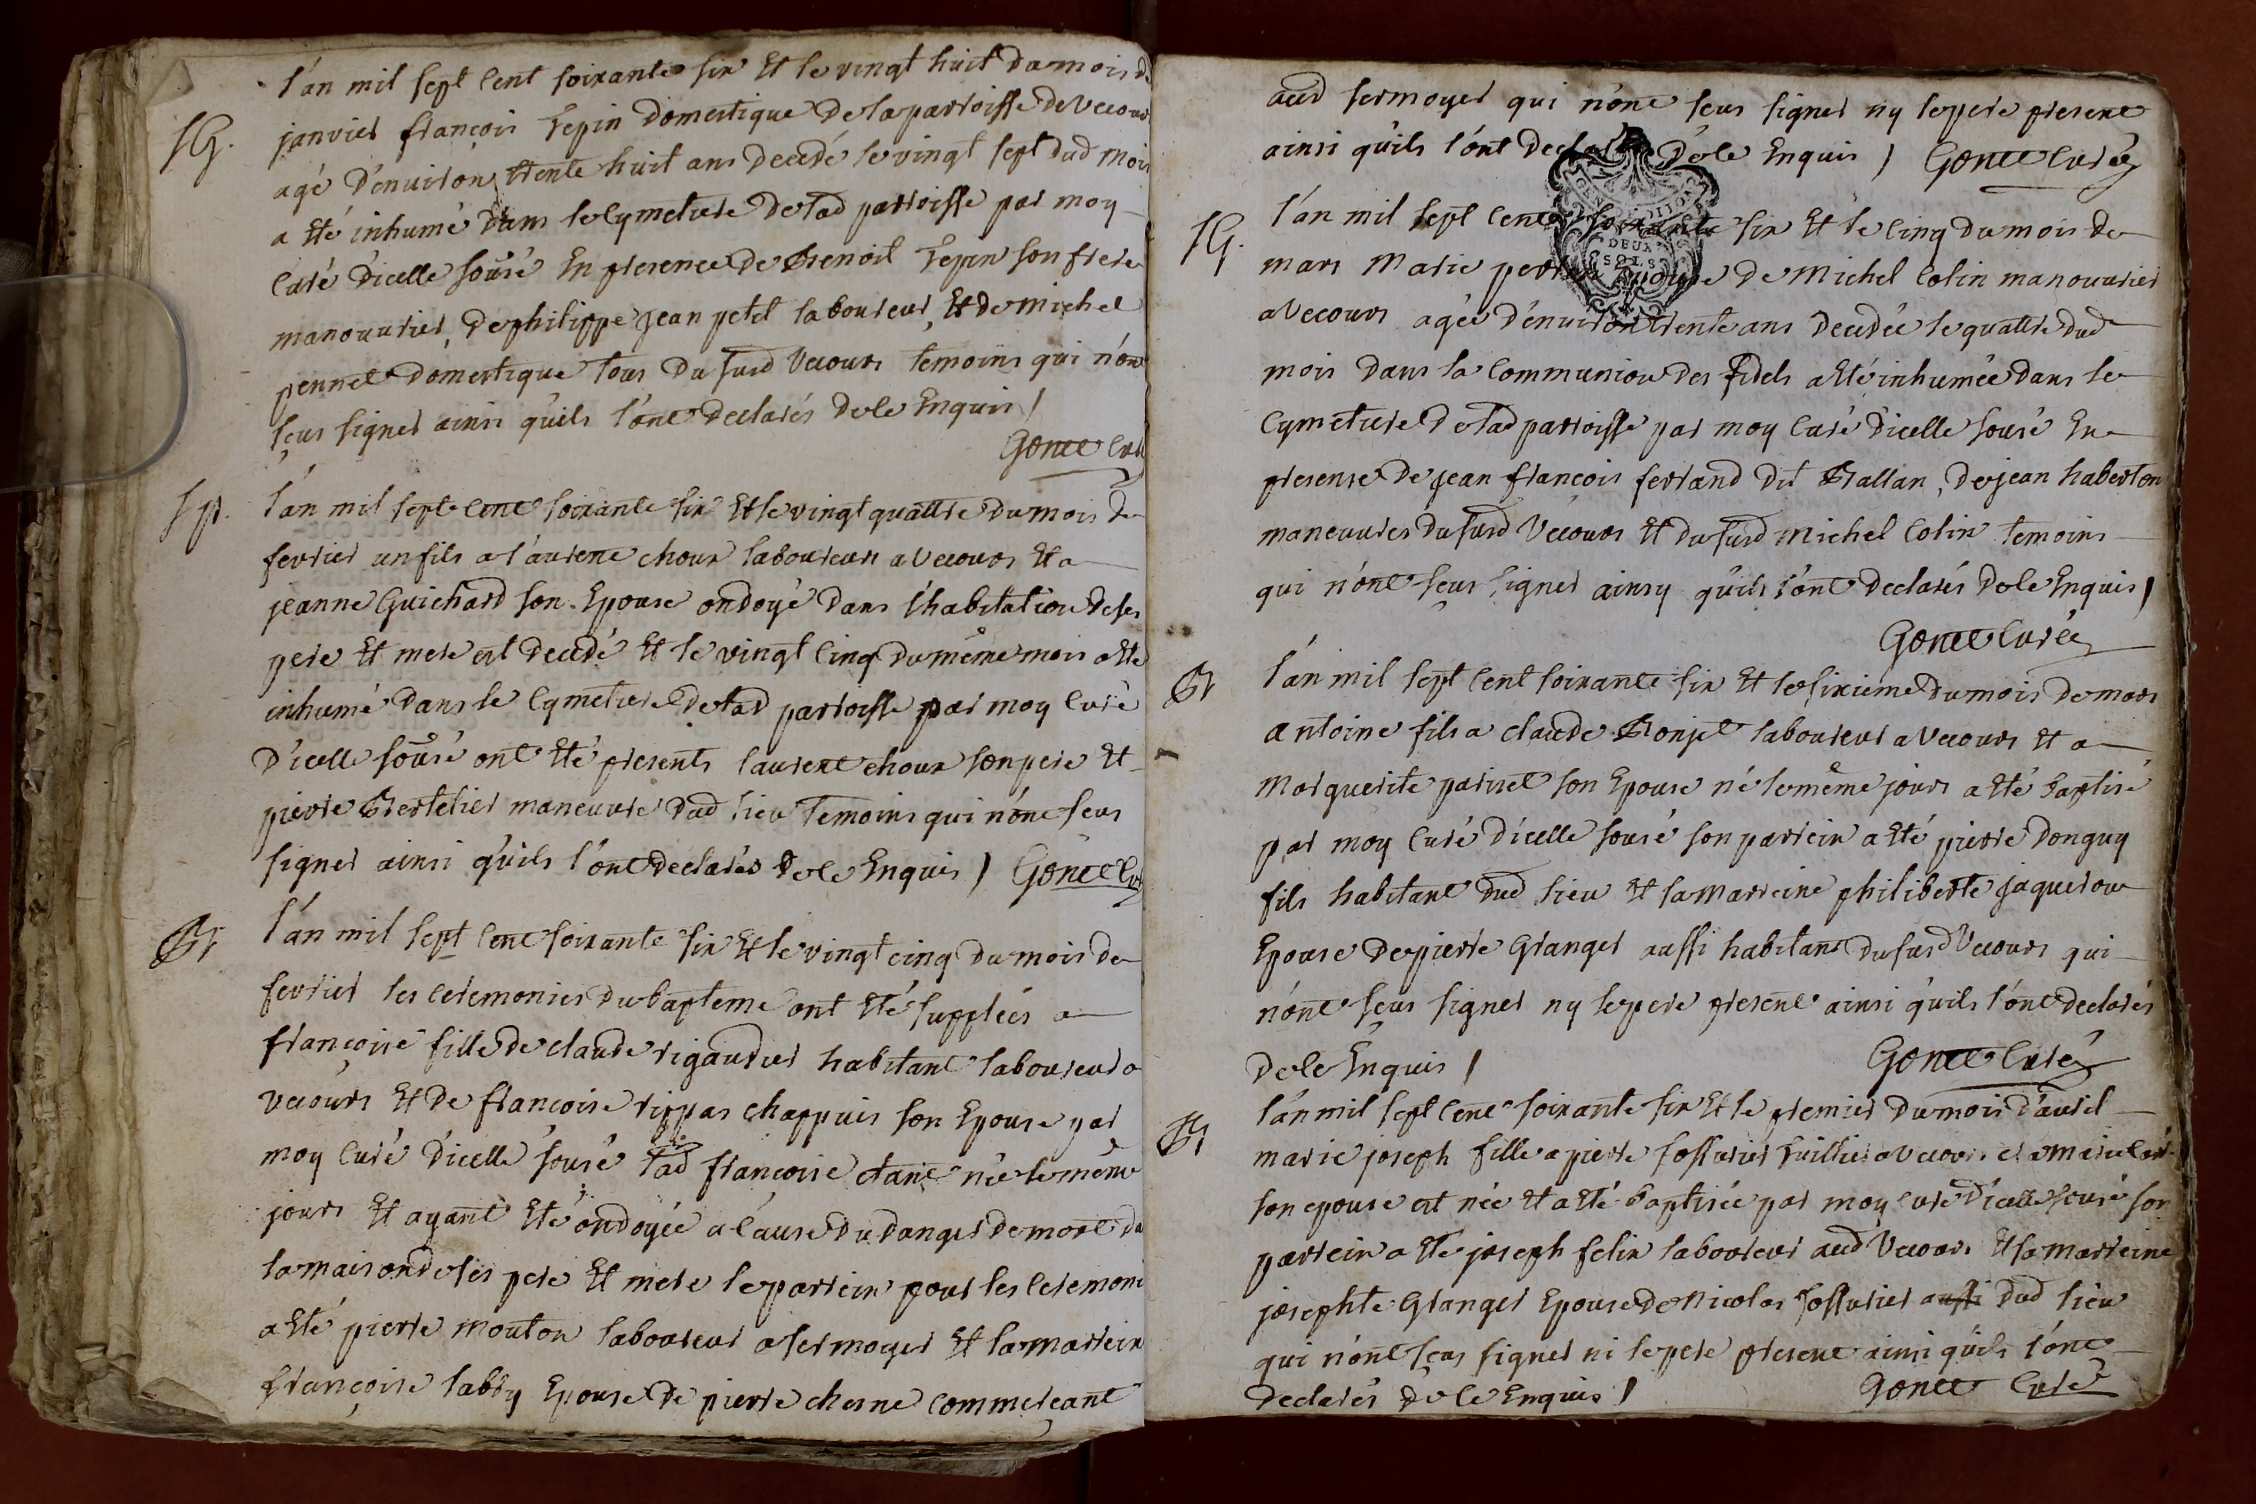 l'an mil sept cent soixante six Et le vingt huit du mois de
SG. janvier françois Pepin domestique de la parroisse de Vecours
agé d'environ trente huit ans decedé le vingt sept dud mois
a Eté inhumé dans le Cymetiere de lad parroisse par moy
Curé d'icelle sousé En presence de Benoit Pepin son frere
manouvrier, de philippe jean petit laboureur, Et de michel
pennet domestique tous du susd Vecours temoins qui n'ont
sçus signer ainsi qu'ils l'ont declarés de le Enquis /
Gonet Curé
Sp. l'an mil sept cent soixante six Et le vingt quattre du mois de
fevrier un fils a l'aurent choux laboureur a Vecours Et a
jeanne Guichard son Epouse ondoyé dans l'habitation de ses
pere Et mere est decedé Et le vingt cinq du même mois a Eté
inhumé dans le Cymetiere de lad parroisse par moy Curé
D'icelle sousé ont Eté presents laurent choux son pere Et
pierre Bertelier maneuvre dud lieu temoins qui n'ont sçus
signer ainsi qu'ils l'ont declarés de le Enquis / Gonet Curé
Bt l'an mil sept cent soixante six Et le vingt cinq du mois de
fevrier les ceremonies du bapteme ont Eté supplées a
françoise fille de claude rigaudier habitant laboureur a
Vecours Et de françoise rippas chappuis son Epouse par
moy Curé d'icelle sousé lad françoise étant née le même
jours Et ayant Eté ondoyée a Cause du danger de mort da
la maison de ses pere Et mere le parrein pour les Ceremoni
a Eté pierre mouton laboureur a sermoyer Et la marrein
françoise labby Epouse de pierre cherne commerçant
aud sermoyer qui n'ont seus signer ny le pere present
ainsi qu'ils l'ont de le Enquis / Gonet Curé
DEUX
SOLS
SG. l'an mil sept cent soixante six Et le cinq du mois de
mars Marie Epouse de Michel Colin manouvrier
a Vecours agée d'environ trente ans decedée le quattre dud
mois dans la Communion des fidels a Eté inhumée dans le
Cymetiere de lad parroisse par moy Curé d'icelle sousé En
presense de jean françois ferrand dit Ballan, de jean haberton
maneuvres du susd Vecours Et du susd Michel Colin temoins
qui n'ont sçus signer ainsy qu'ils l'ont declarés de le Enquis /
Gonet Curé
Bt l'an mil sept cent soixante six Et le sixieme du mois de mars
antoine fils a claude Bonjet laboureur a Vecours Et a
Marguerite pariset son Epouse né le même jours a Eté baptisé
par moy Curé d'icelle sousé son parrein a Eté pierre donguy
fils habitant dud lieu Et la marreine philiberte jaquerou
Epouse de pierre Granger aussi habitans du susd Vecours qui
n'ont sçus signer ny le pere present ainsi qu'ils l'ont declarés
de le Enquis / Gonet Curé
Bt l'an mil sept cent soixante six Et le premier du mois d'avril
marie joseph fille a pierre fossurier tuillier a Vecours et a
son epouse est née Et a Eté baptisée par moy curé d'icelle sousé son
parrein a Eté joseph felix laboureur aud Vecours Et la marreine
josephte Granger Epouse de Nicolas fossurier aussi dud lieu
qui n'ont sçus signer ni le pere present ainsi qu'ils l'ont
declarés de le Enquis / Gonet Curé